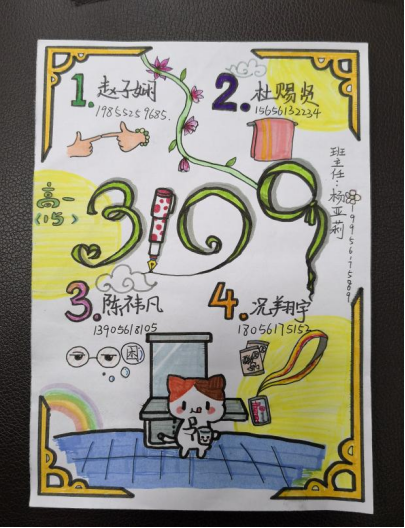 1.赵子娴
19855259685.
2.杜赐贤
15656132234
高一
(15)
3109
班主任:杨亚莉
3.陈祎凡
13905618105
4.况翔宇
18056175152
困